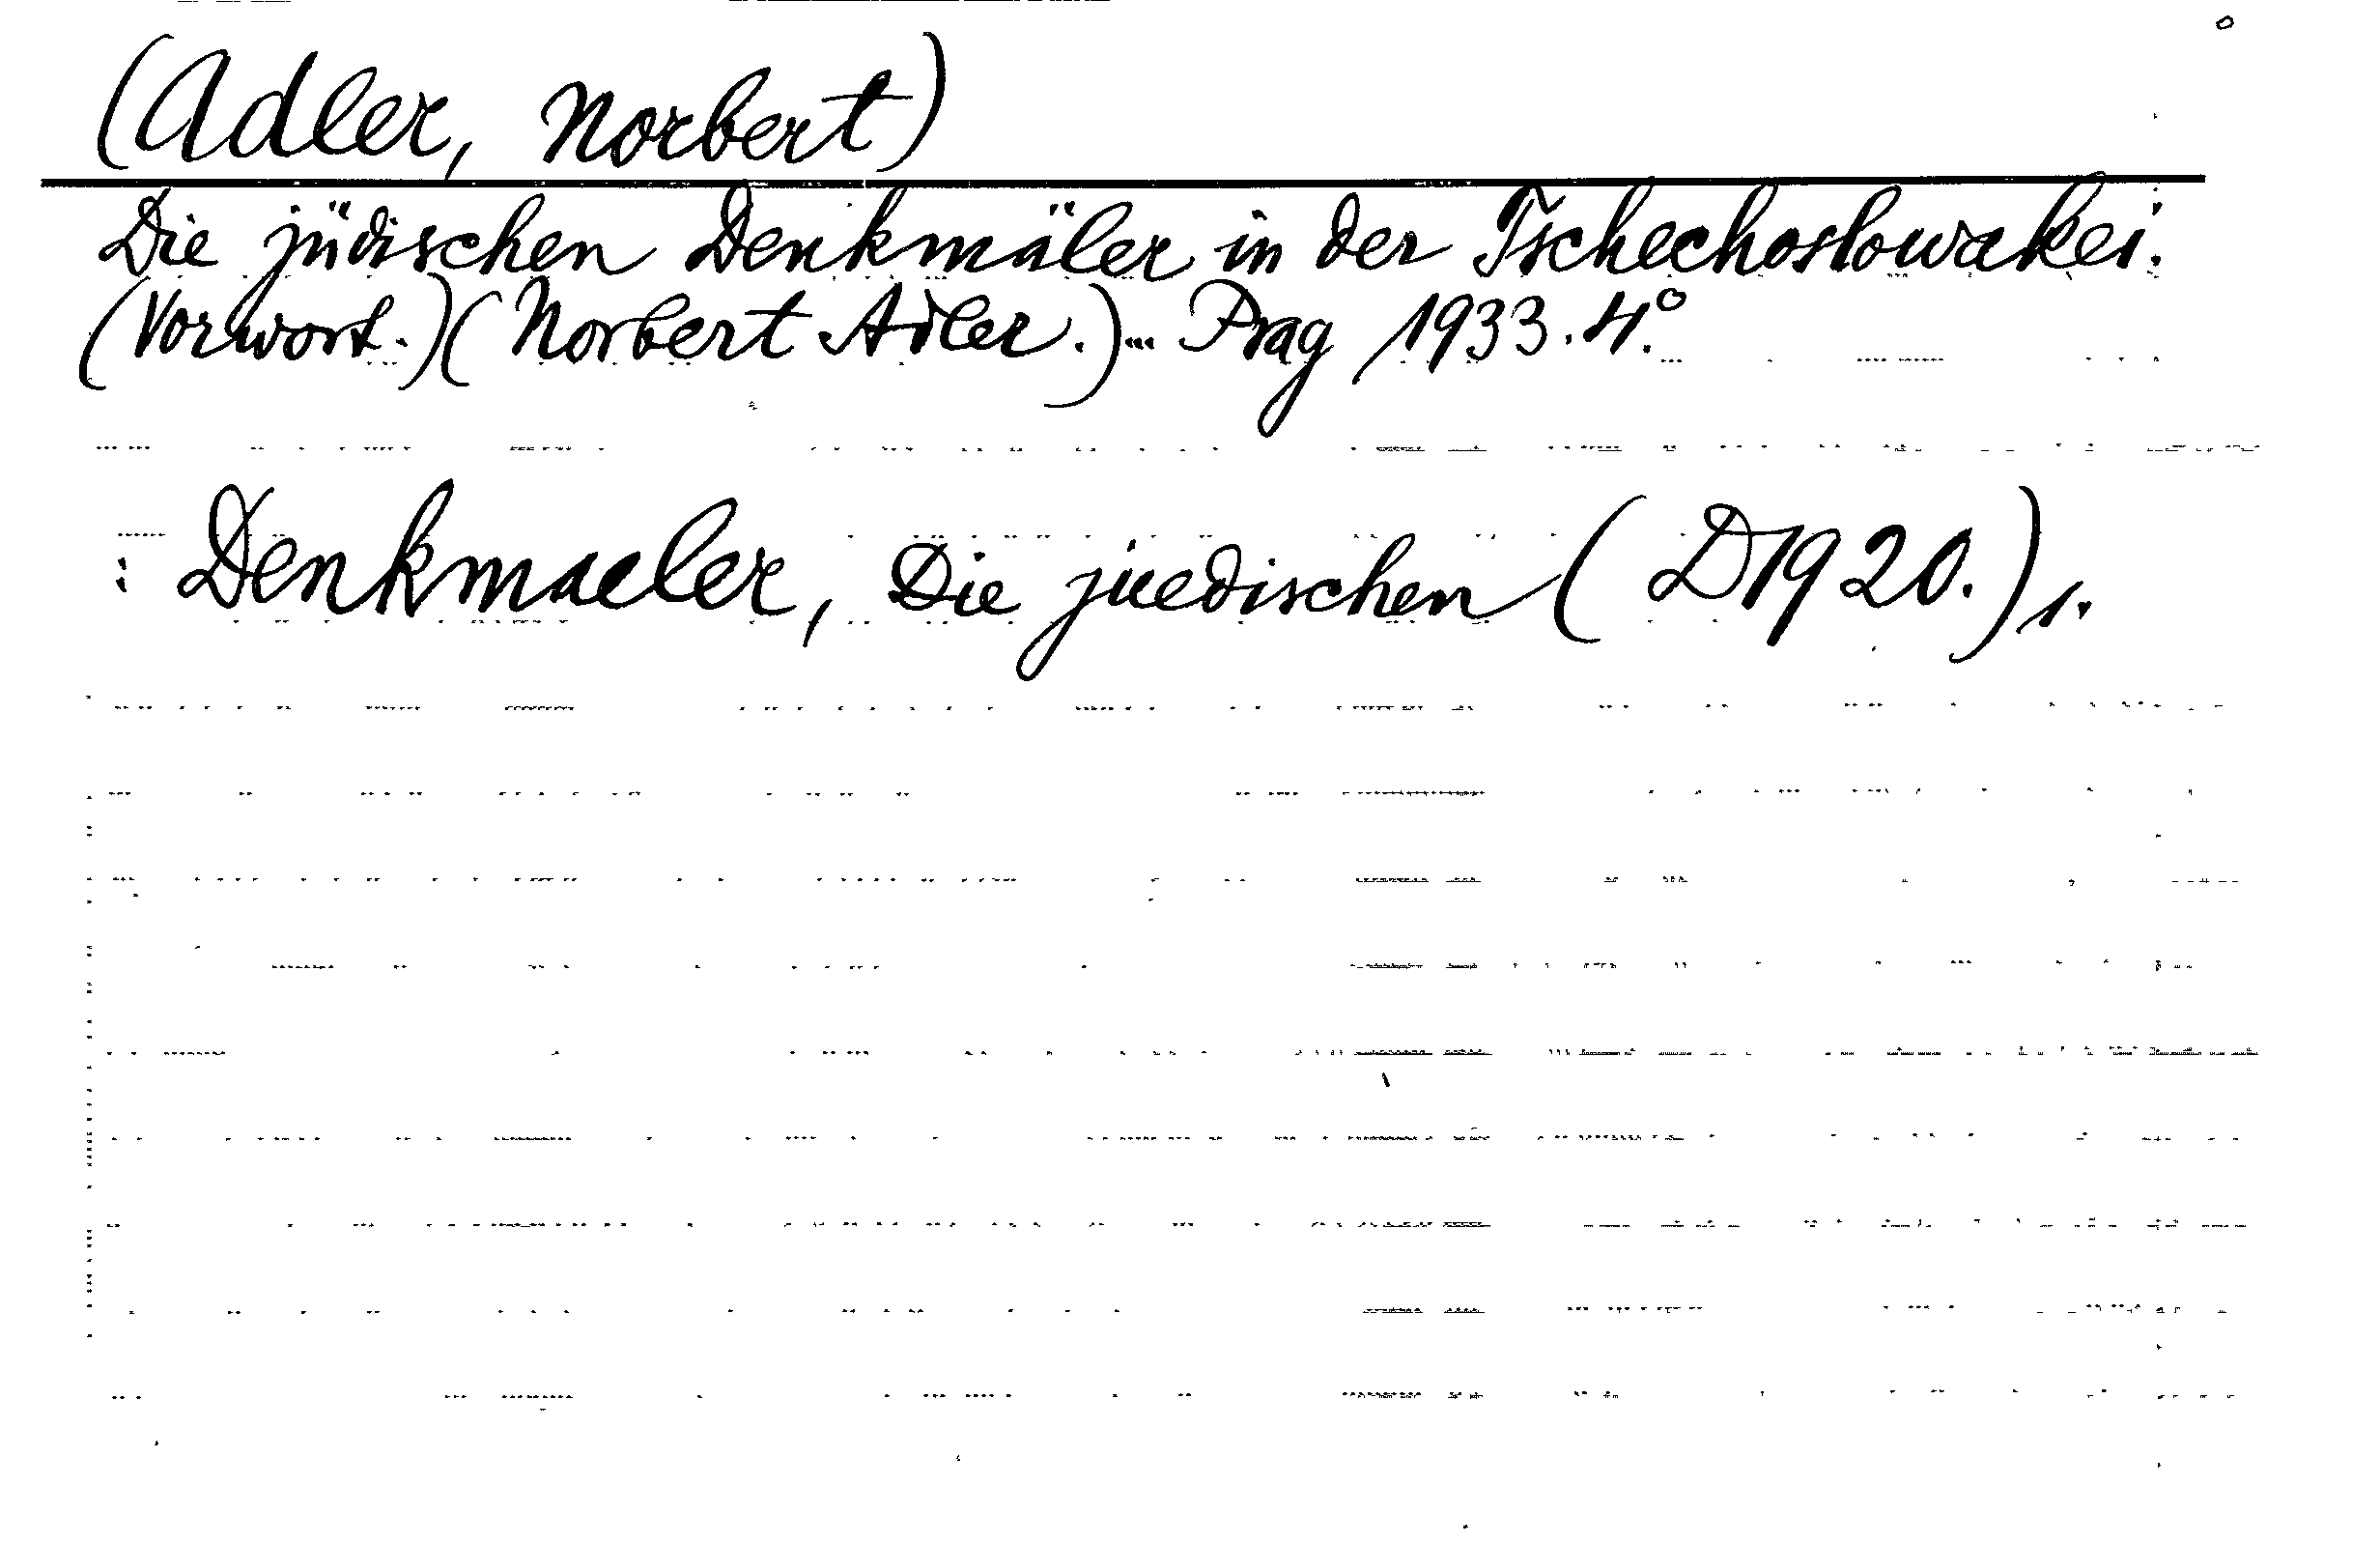 (Adler, Norbert)
Die jüdischen Denkmäler in der Tschechoslowakei.
(Vorwort.)(Norbert Adler.)... Prag 1933. 4.°
: Denkmaeler, Die juedischen (D1920.) s.